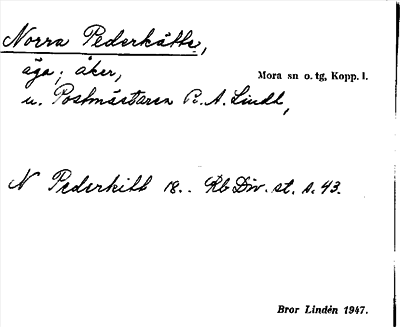 Norra Pederkätte,
äga; åker,
Mora sn o. tg, Kopp. l.
u. Postmästaren P. A. Lindh,
N Pederkitt 18.. Rb Div. st. s. 43.
Bror Lindén 1947.